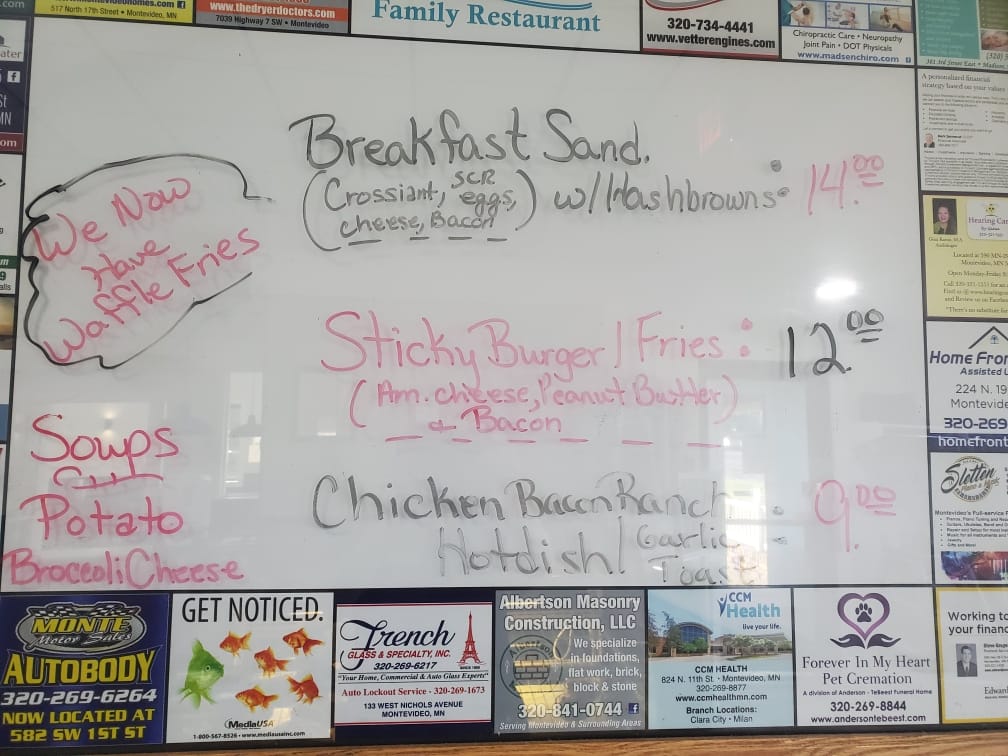 517 North 17th Street • Montevideo, MN
www.thedryerdoctors.com
7039 Highway 7 SW • Montevideo
Family Restaurant
320-734-4441
www.vetterengines.com
Chiropractic Care • Neuropathy
Joint Pain • DOT Physicals
www.madsenchiro.com
A personalized financial
strategy based on your values
We Now
Have
Waffle Fries
Breakfast Sand.
(Crossiant, SCR eggs,) w/Hashbrowns: 14.00
cheese, Bacon
Sticky Burger / Fries: 12.00
(Am. cheese, Peanut Butter)
& Bacon
Soups
Potato
Broccoli Cheese
Chicken Bacon Ranch : 9.00
Hotdish / Garlic
Toast
Hearing Car
Located at 590 MN-
Montevideo, MN 5
Open Monday-Friday 8
Home Fron
Assisted L
224 N. 19
Montevide
320-269
homefront
Sletten
Montevideo's Full-service
MONTE
Motor Sales
AUTOBODY
320-269-6264
NOW LOCATED AT
582 SW 1ST ST
GET NOTICED.
MediaUSA
1-800-567-8526 • www.mediausainc.com
French
GLASS & SPECIALTY, INC.
320-269-6217
"Your Home, Commercial & Auto Glass Experts"
Auto Lockout Service - 320-269-1673
133 WEST NICHOLS AVENUE
MONTEVIDEO, MN
Albertson Masonry
Construction, LLC
We specialize
in foundations,
flat work, brick,
block & stone
320-841-0744
Serving Montevideo & Surrounding Areas
CCM
Health
live your life.
CCM HEALTH
824 N. 11th St. • Montevideo, MN
320-269-8877
www.ccmhealthmn.com
Branch Locations:
Clara City • Milan
Forever In My Heart
Pet Cremation
A division of Anderson - TeBeest Funeral Home
320-269-8844
www.andersontebeest.com
Working to
your financ